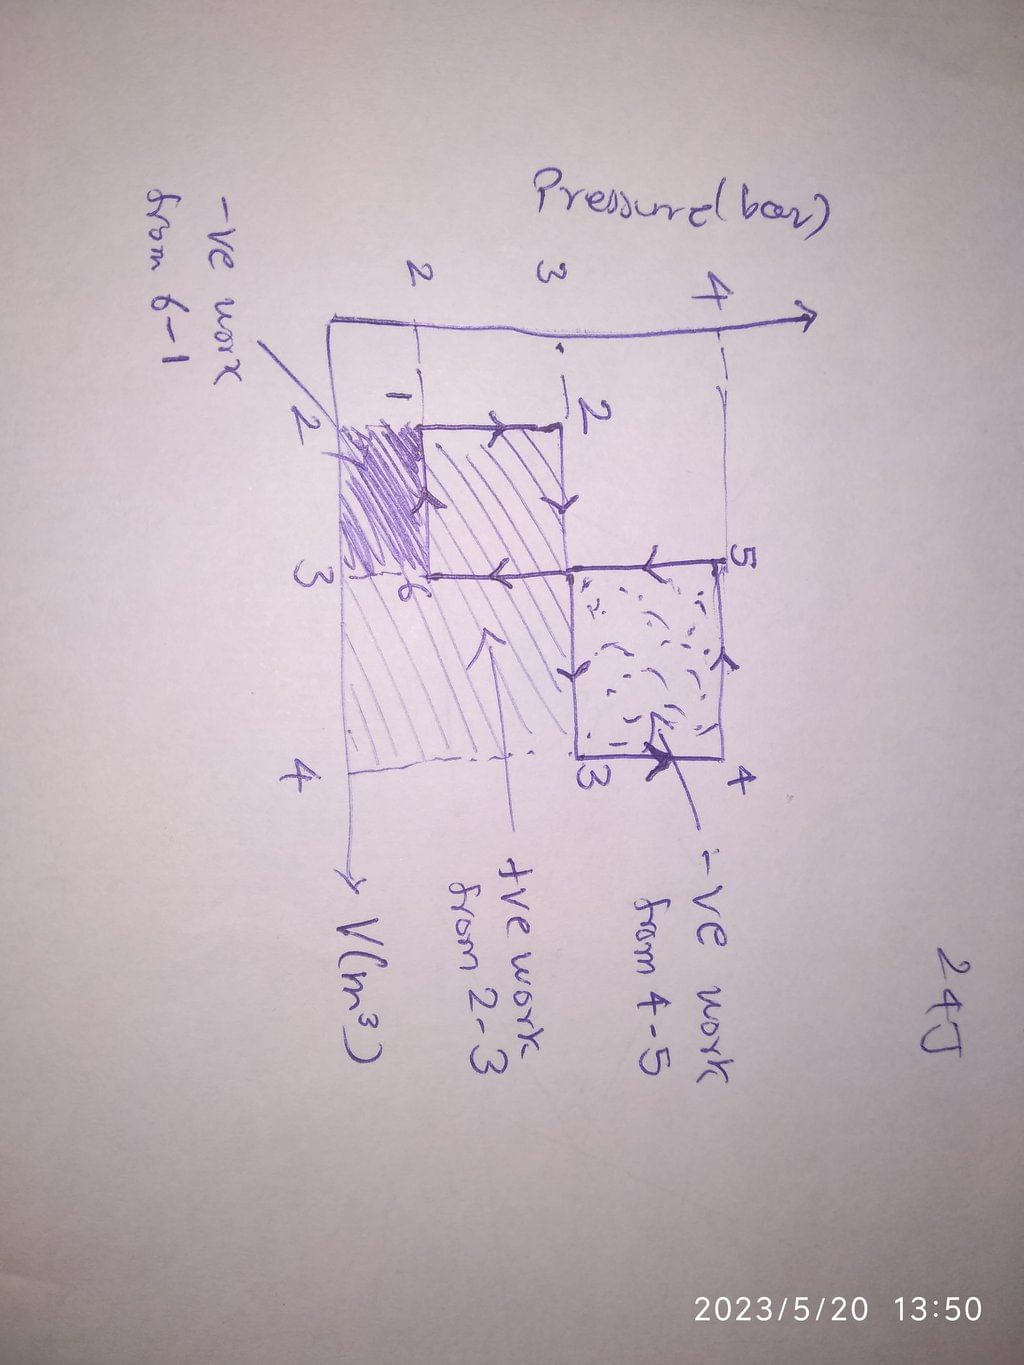 24J
Pressure(bar)
4
3
2
5
4
2
3
1
6
2
3
4
V(m³)
-ve work
from 4-5
+ve work
from 2-3
-ve work
from 6-1
2023/5/20 13:50